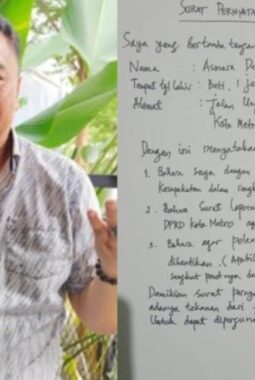 SURAT PERNYATA
Saya yang bertanda tangan
Nama :
Tempat tgl lahir : Beti, 1 J
Alamat : Jalan Un
Kota Metr
Dengan ini menyatakan
1. Bahwa saya dengan
Kesepakatan dalam rangk
2. Bahwa Surat laporan
DPRD Kota Metro ag
3. Bahwa agar polem
dihentikan. (Apabil
sangkut paut nya da
Demikian surat perny
adanya tekanan dari
Untuk dapat dipergun